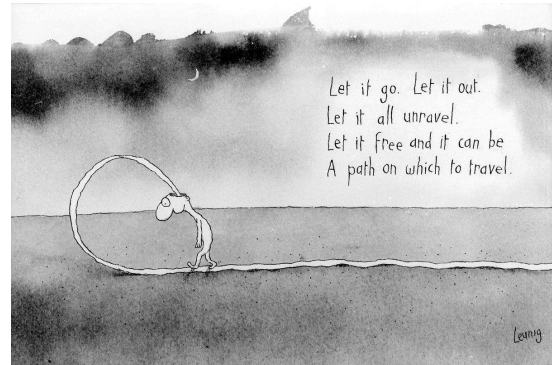 Let it go. Let it out.
Let it all unravel.
Let it free and it can be
A path on which to travel.
Leunig